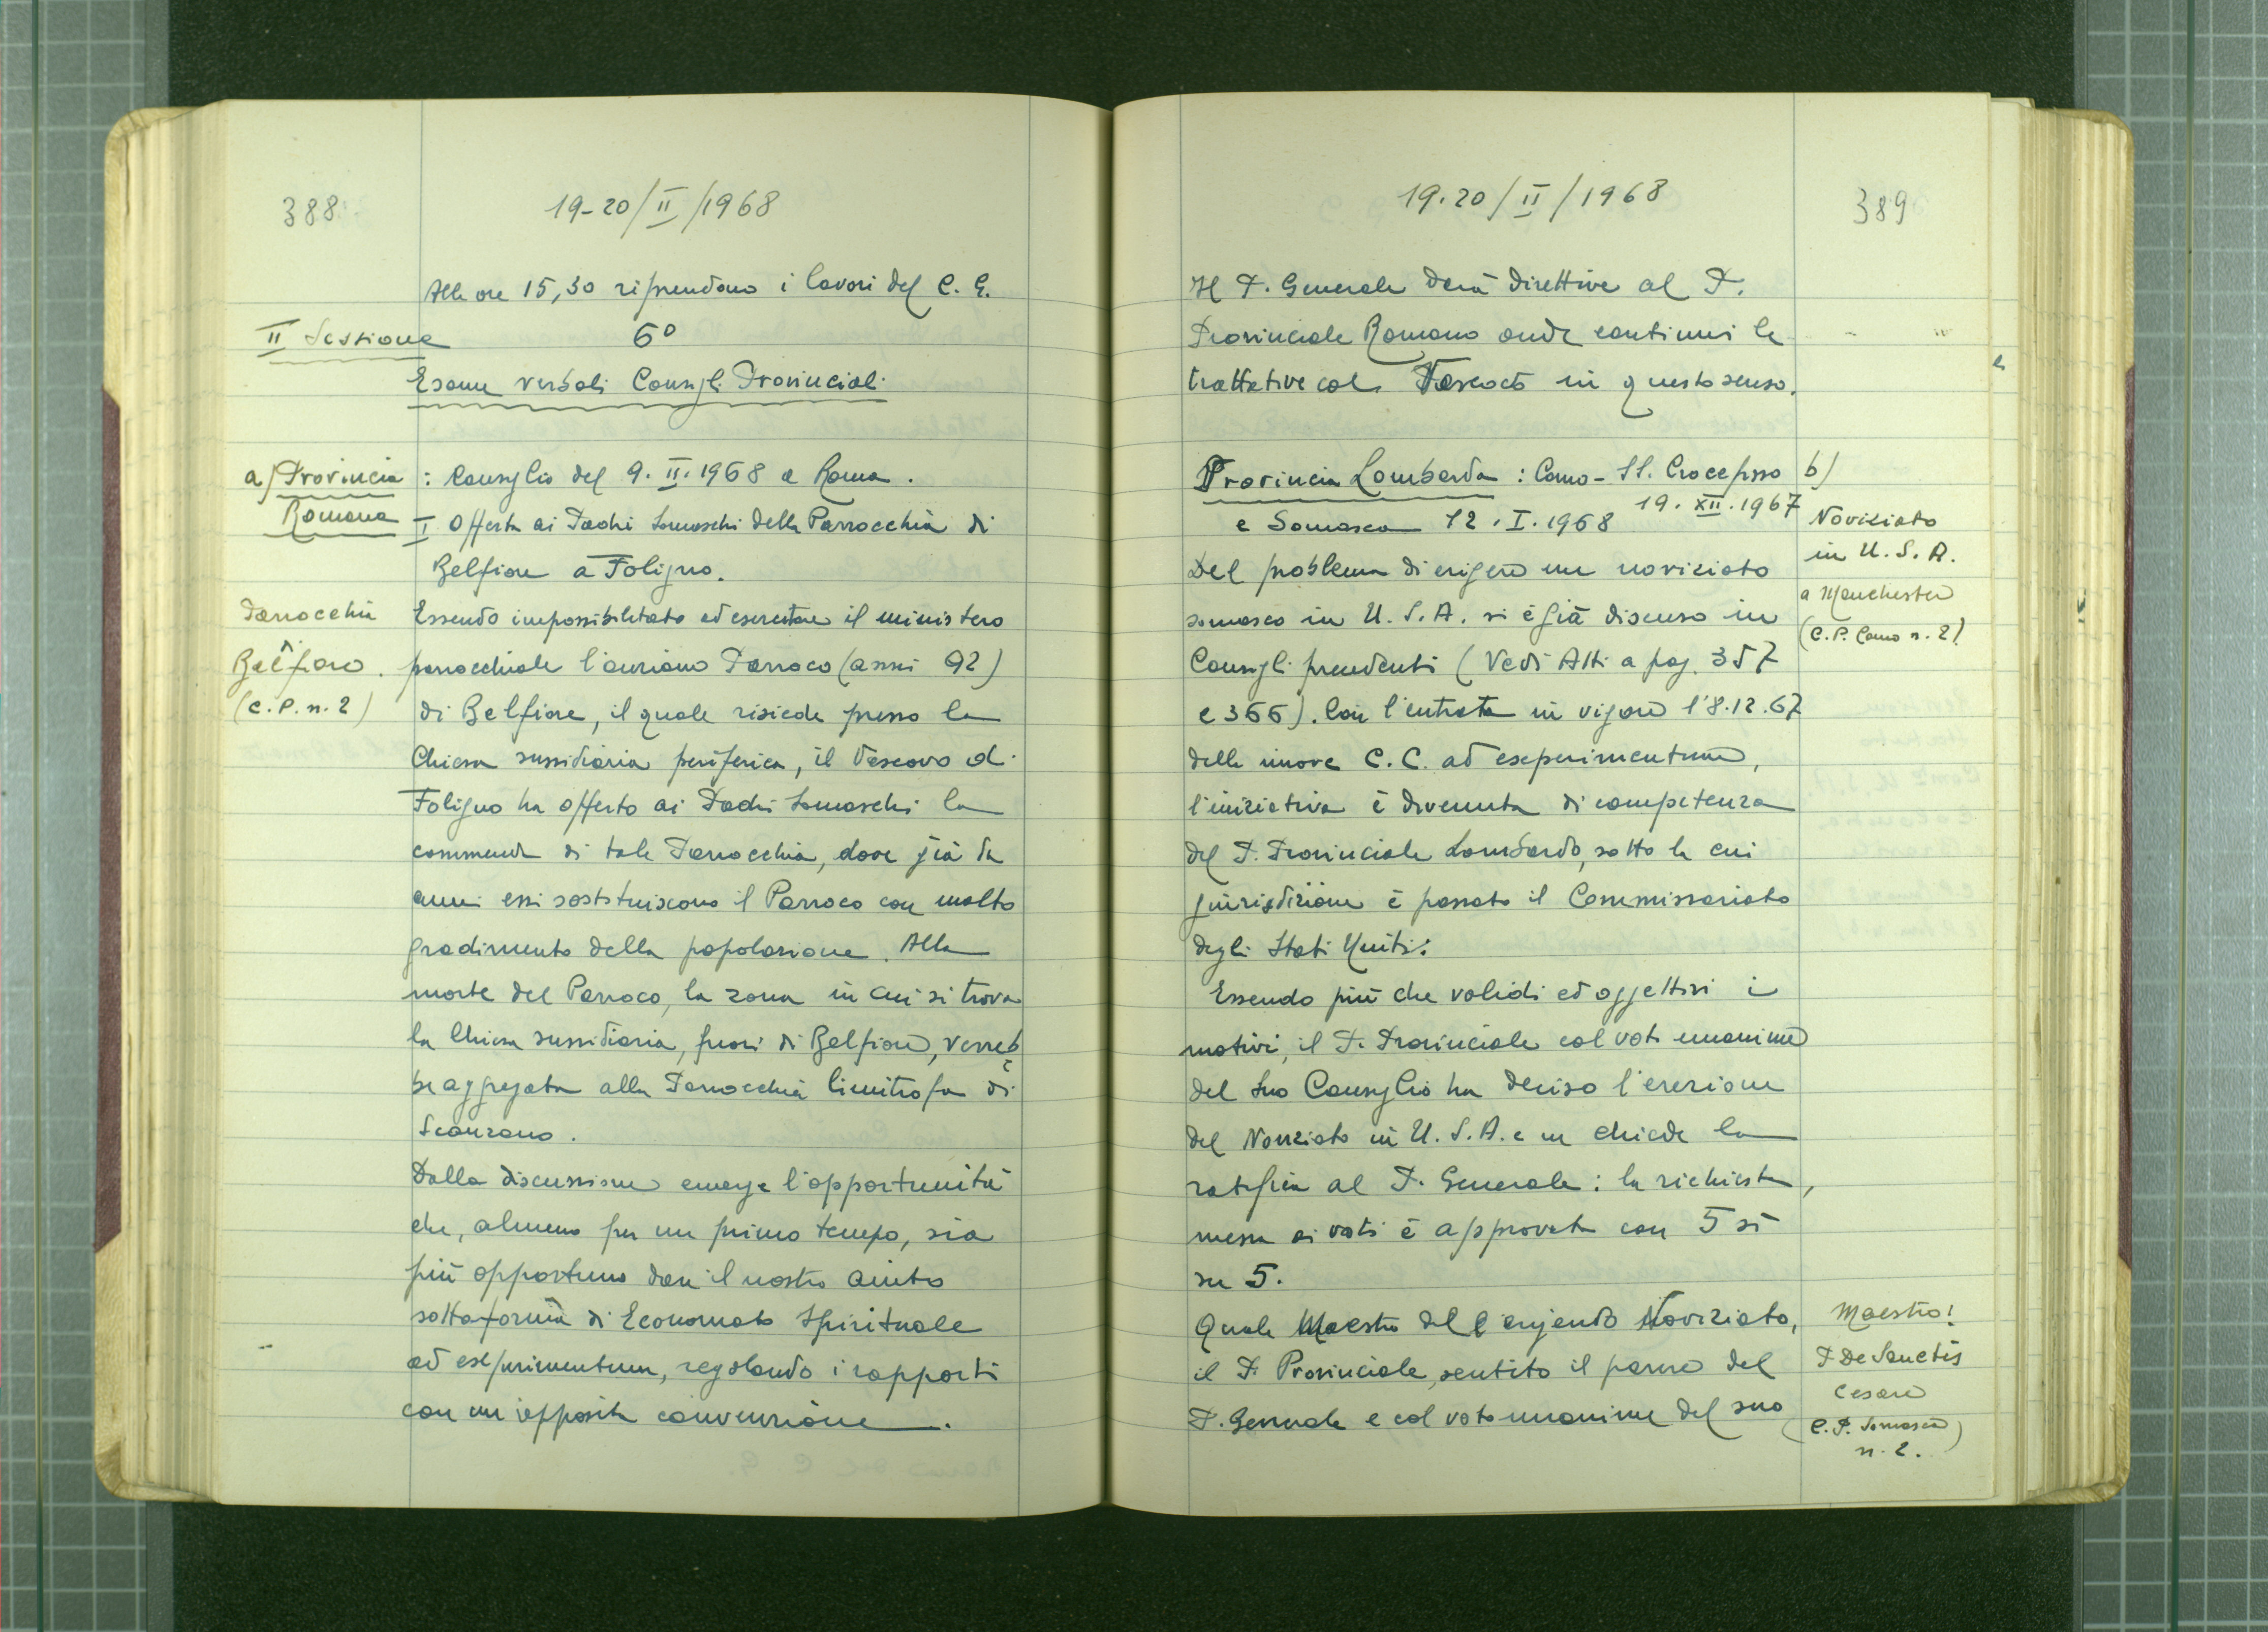 388
19-20/II/1968
Alle ore 15,30 riprendono i lavori del C. G.
II Sessione
6°
Esame verbali Consigli Provinciali
a) Provincia Romana
: Consiglio del 9. II. 1968 a Roma.
I Offerta ai Padri Somaschi della Parrocchia di
Belfiore a Foligno.
Parrocchia
Belfiore.
(C. P. n. 2)
Essendo impossibilitato ad esercitare il ministero
parrocchiale l'anziano Parroco (anni 92)
di Belfiore, il quale risiede presso la
Chiesa sussidiaria periferica, il Vescovo di
Foligno ha offerto ai Padri Somaschi la
commenda di tale Parrocchia, dove già da
anni essi sostituiscono il Parroco con molto
gradimento della popolazione. Alla
morte del Parroco, la zona in cui si trova
la Chiesa sussidiaria, fuori di Belfiore, verreb
be aggregata alla Parrocchia limitrofa di
Scanzano.
Dalla discussione emerge l'opportunità
che, almeno per un primo tempo, sia
più opportuno dare il nostro aiuto
sotto forma di Economato Spirituale
ad experimentum, regolando i rapporti
con un apposita convenzione.
19.20/II/1968
389
Il P. Generale darà direttive al P.
Provinciale Romano onde continui le
trattative col Vescovo in questo senso.
Provincia Lombarda : Como - SS. Crocefisso
19. XII. 1967
e Somasca 12. I. 1968
b)
Noviziato
in U. S. A.
a Manchester
(C. P. Como n. 2)
Del problema di erigere un noviziato
somasco in U. S. A. si è già discusso in
Consigli precedenti (Vedi Atti a pag. 357
e 366). Con l'entrata in vigore l'8.12.67
delle nuove C. C. ad experimentum,
l'iniziativa è divenuta di competenza
del P. Provinciale Lombardo, sotto la cui
giurisdizione è passato il Commissariato
degli Stati Uniti:
Essendo più che validi ed oggettivi i
motivi, il P. Provinciale col voto unanime
del suo Consiglio ha deciso l'erezione
del Noviziato in U. S. A. e ne chiede la
ratifica al P. Generale: la richiesta,
messa ai voti è approvata con 5 sì
su 5.
Quale Maestro dell'erigendo Noviziato,
il P. Provinciale, sentito il parere del
P. Generale e col voto unanime del suo
Maestro:
P De Sanctis
Cesare
(C. P. Somasca)
n. 2.